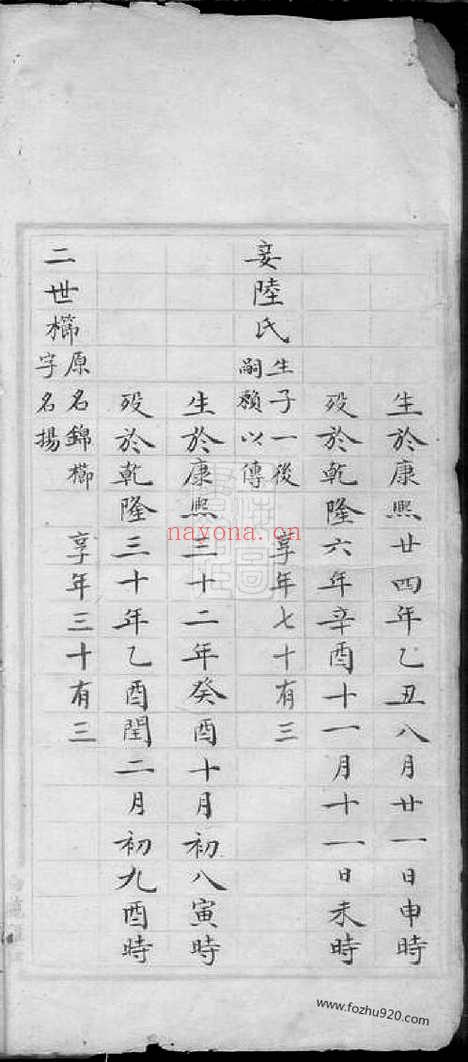 生於康熙廿四年乙丑八月廿一日申時
歿於乾隆六年辛酉十一月十一日未時
妾陸氏
生子一後
嗣賴以傳
享年七十有三
生於康熙三十二年癸酉十月初八寅時
歿於乾隆三十年乙酉閏二月初九酉時
二世櫛
原名錦櫛
字名揚
享年三十有三
nayona.cn
www.fozhu920.com